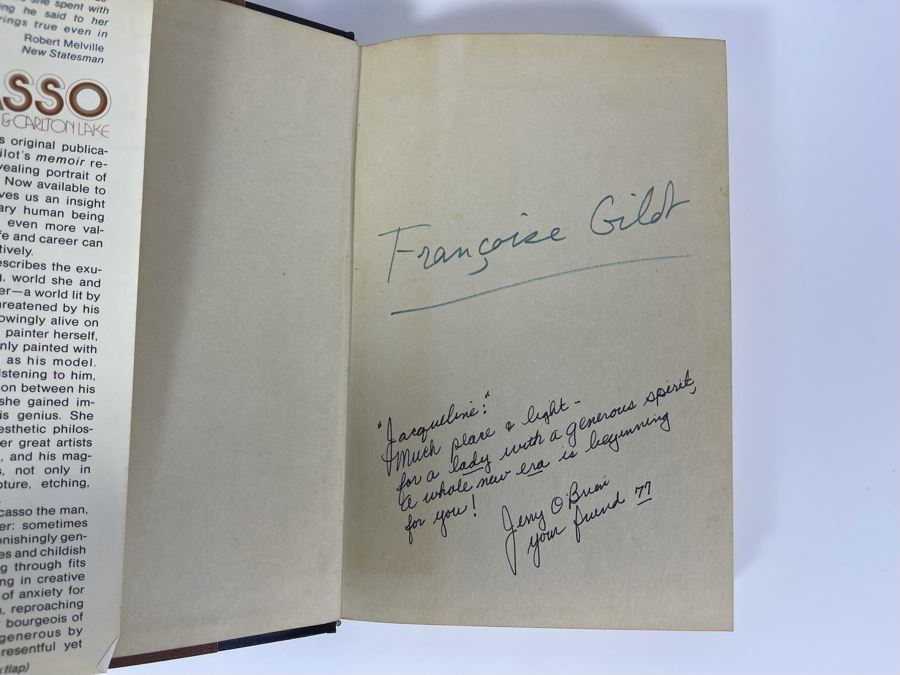 she spent with
ing he said to her
rings true even in
Robert Melville
New Statesman
ASSO
& CARLTON LAKE
s original publica-
ilot's memoir re-
vealing portrait of
Now available to
ves us an insight
ary human being
even more val-
fe and career can
tively.
escribes the exu-
g, world she and
er—a world lit by
hreatened by his
owingly alive on
painter herself,
nly painted with
as his model.
istening to him,
on between his
she gained im-
is genius. She
esthetic philos-
er great artists
, and his mag-
s, not only in
pture, etching,
casso the man,
er: sometimes
onishingly gen-
es and childish
g through fits
ng in creative
of anxiety for
n, reproaching
bourgeois of
generous by
resentful yet
flap)
Françoise Gilot
"Jacqueline:"
Much peace & light -
for a lady with a generous spirit,
A whole new era is beginning
for you!
Jerry O'Brien
your friend 77